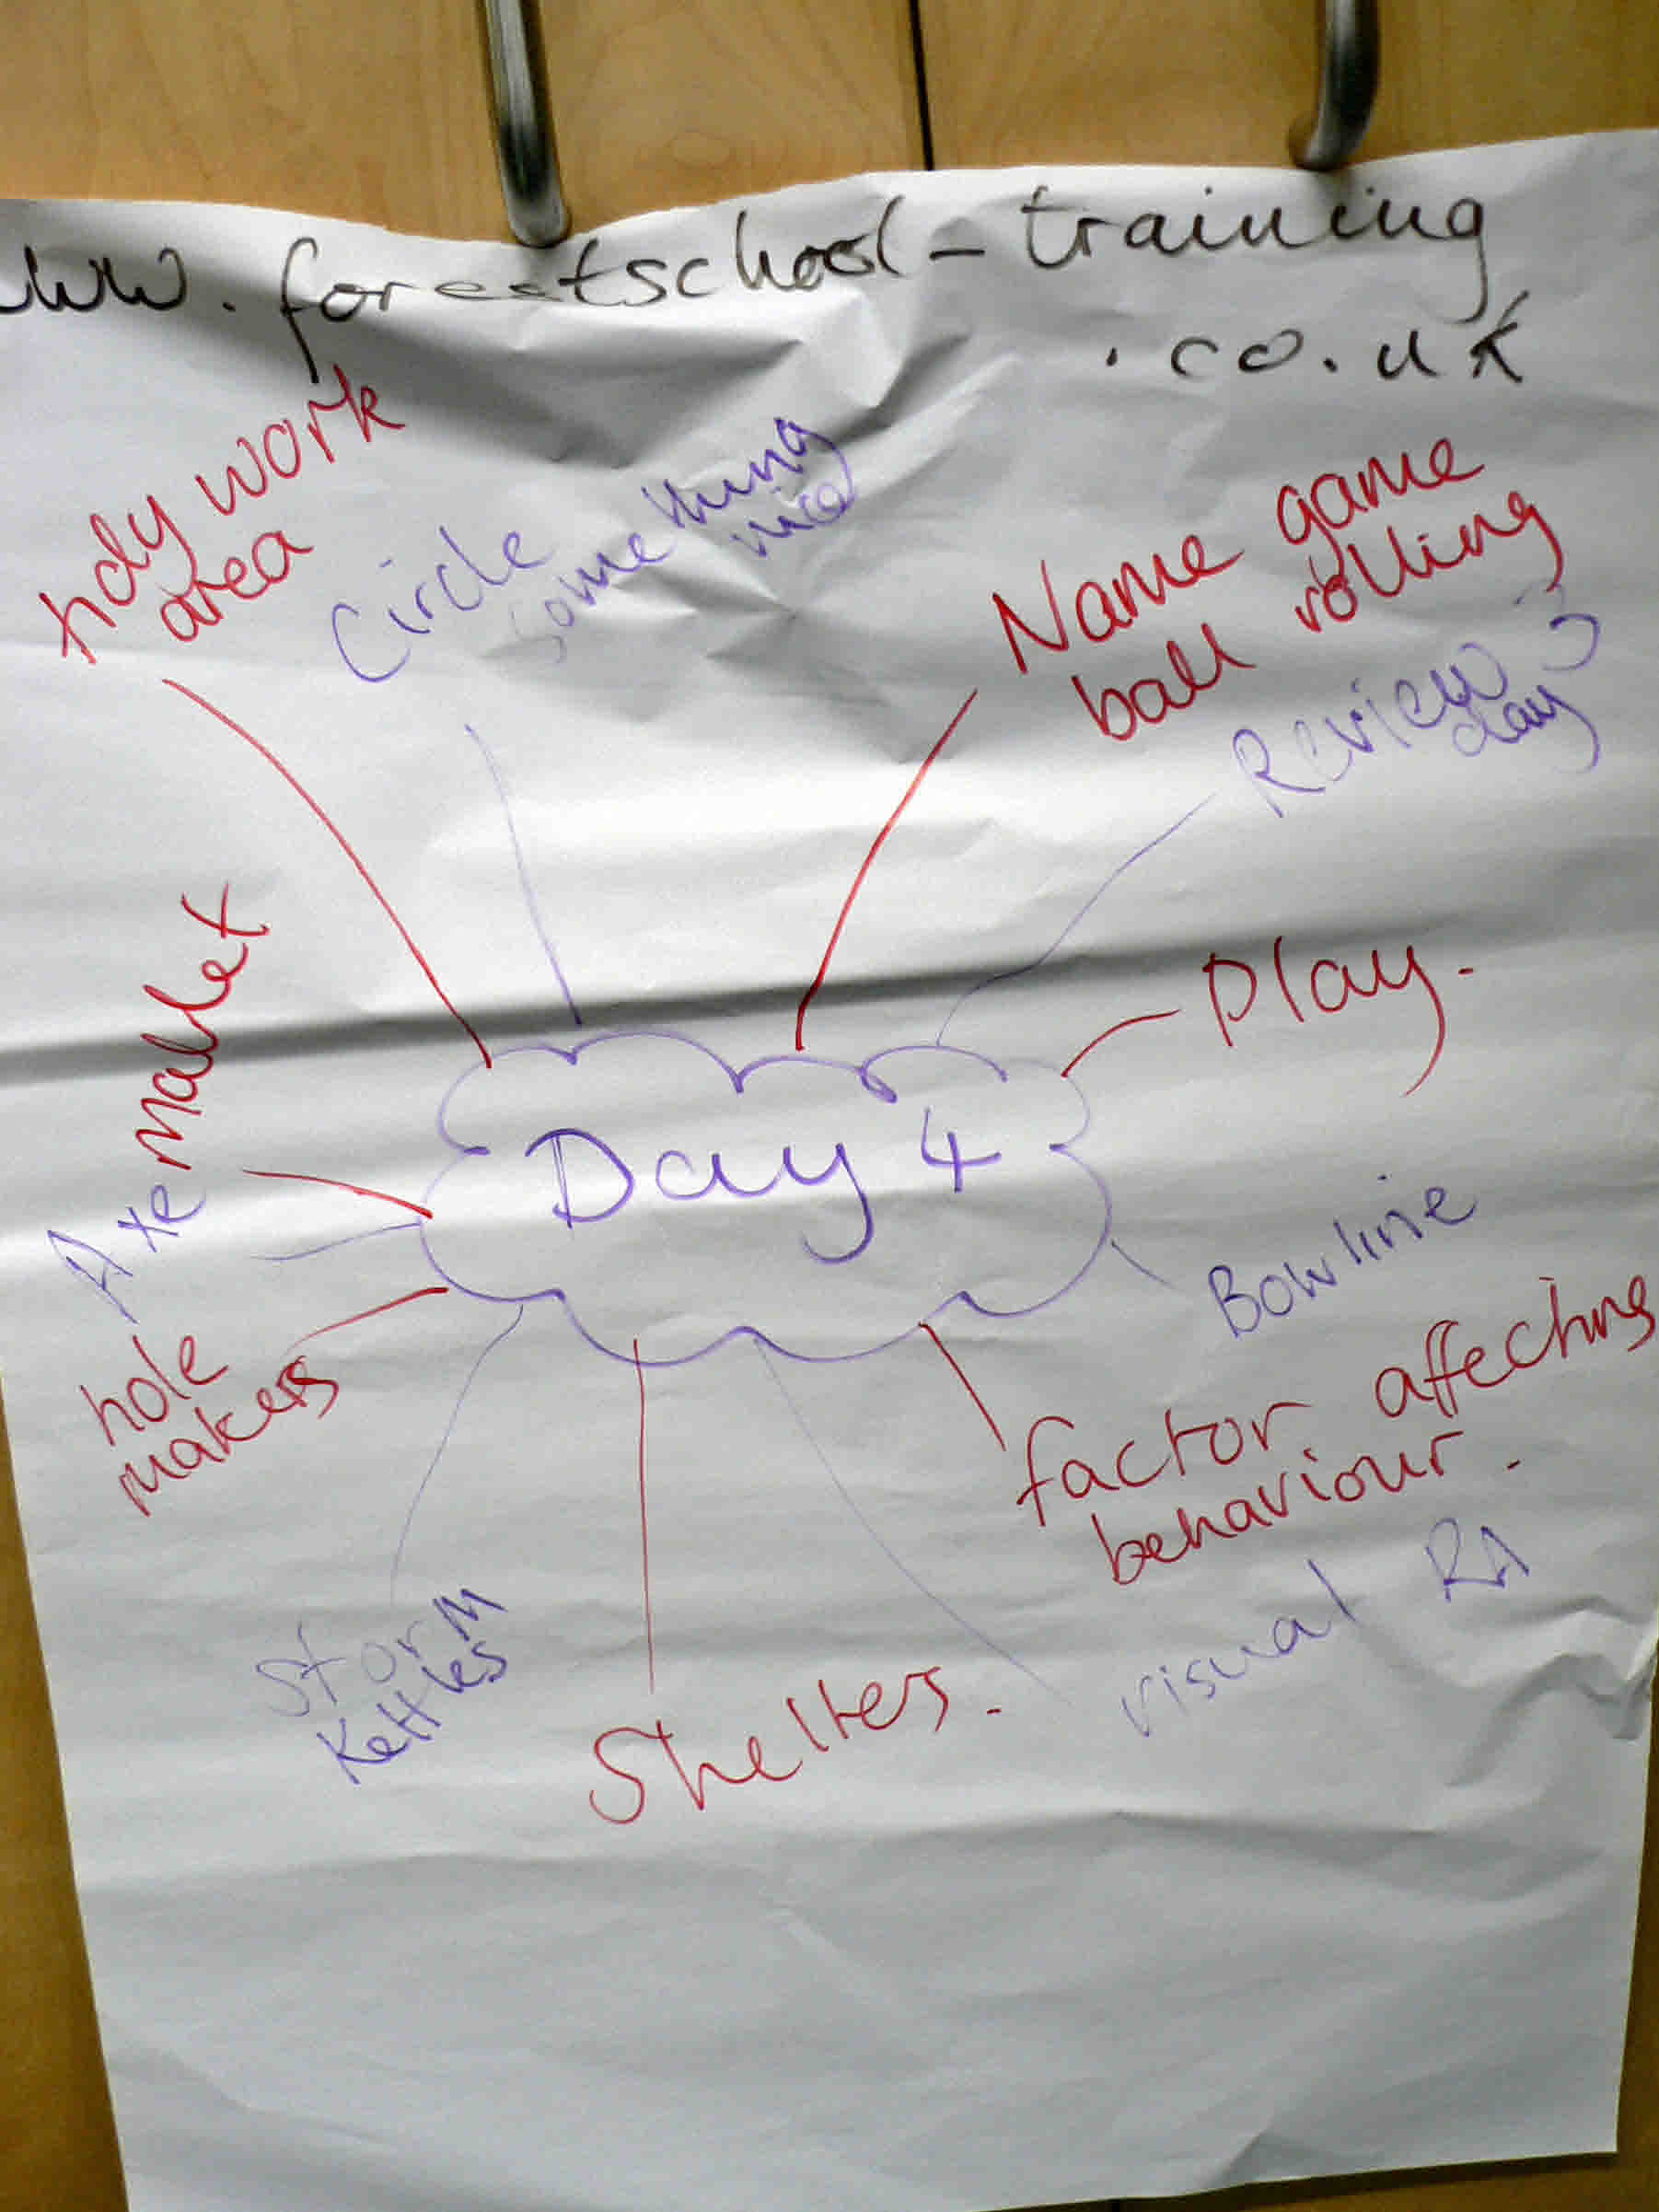 www.forestschool-training
.co.uk
tidy work
area
Circle
something
nice
Name game
ball rolling
Review 3
day
Play.
Bowline
factor affecting
behaviour.
visual RA
Shelters.
Storm
Kettles
hole
makers
Axe
Mallet
Day 4